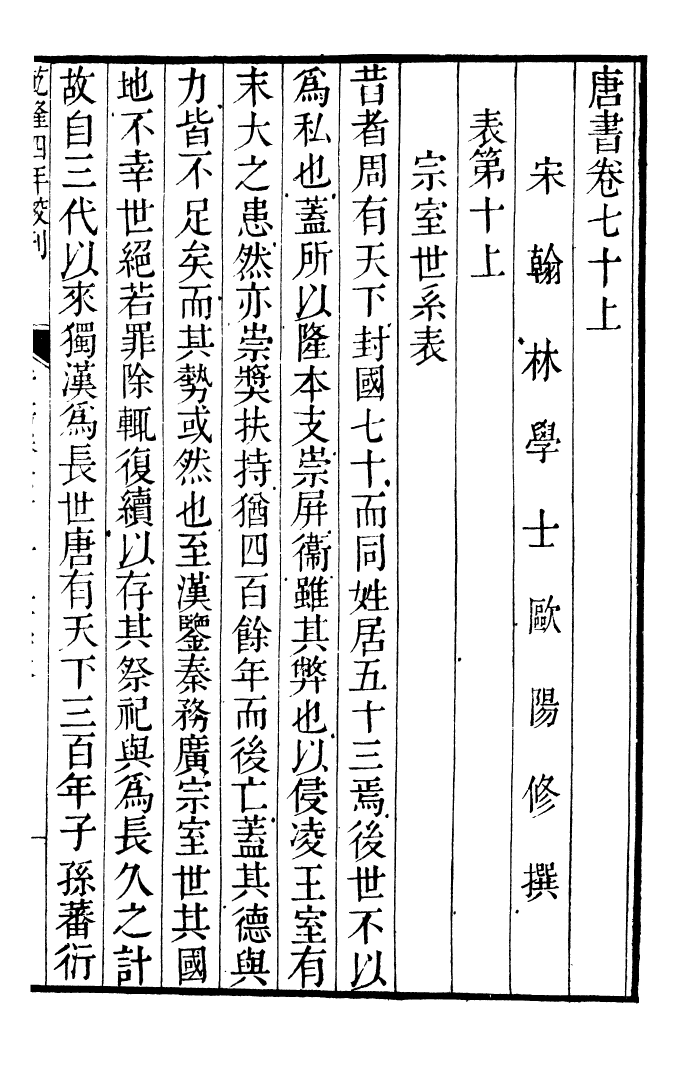 唐書卷七十上
宋翰林學士歐陽修撰
表第十上
宗室世系表
昔者周有天下封國七十而同姓居五十三焉後世不以
爲私也蓋所以隆本支崇屏衞雖其弊也以侵凌王室有
末大之患然亦崇獎扶持猶四百餘年而後亡蓋其德與
力皆不足矣而其勢或然也至漢鑒秦務廣宗室世其國
地不幸世絕若罪除輒復續以存其祭祀與爲長久之計
故自三代以來獨漢爲長世唐有天下三百年子孫蕃衍
乾隆四年校刋